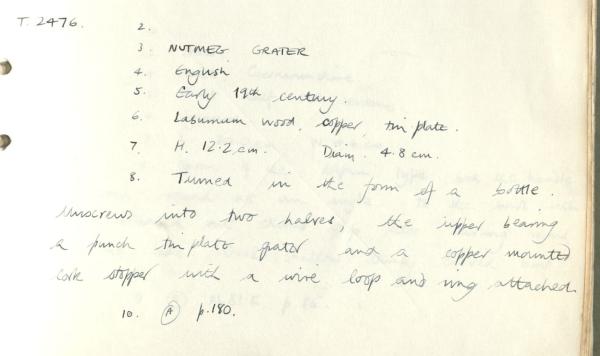 T. 2476. 2.
3. NUTMEG GRATER
4. English
5. Early 19th century.
6. Laburnum wood, copper, tin plate.
7. H. 12.2 cm. Diam. 4.8 cm.
8. Turned in the form of a bottle.
Unscrews into two halves, the upper bearing
a punch tin plate grater and a copper mounted
cork stopper with a wire loop and ring attached.
10. A p.180.